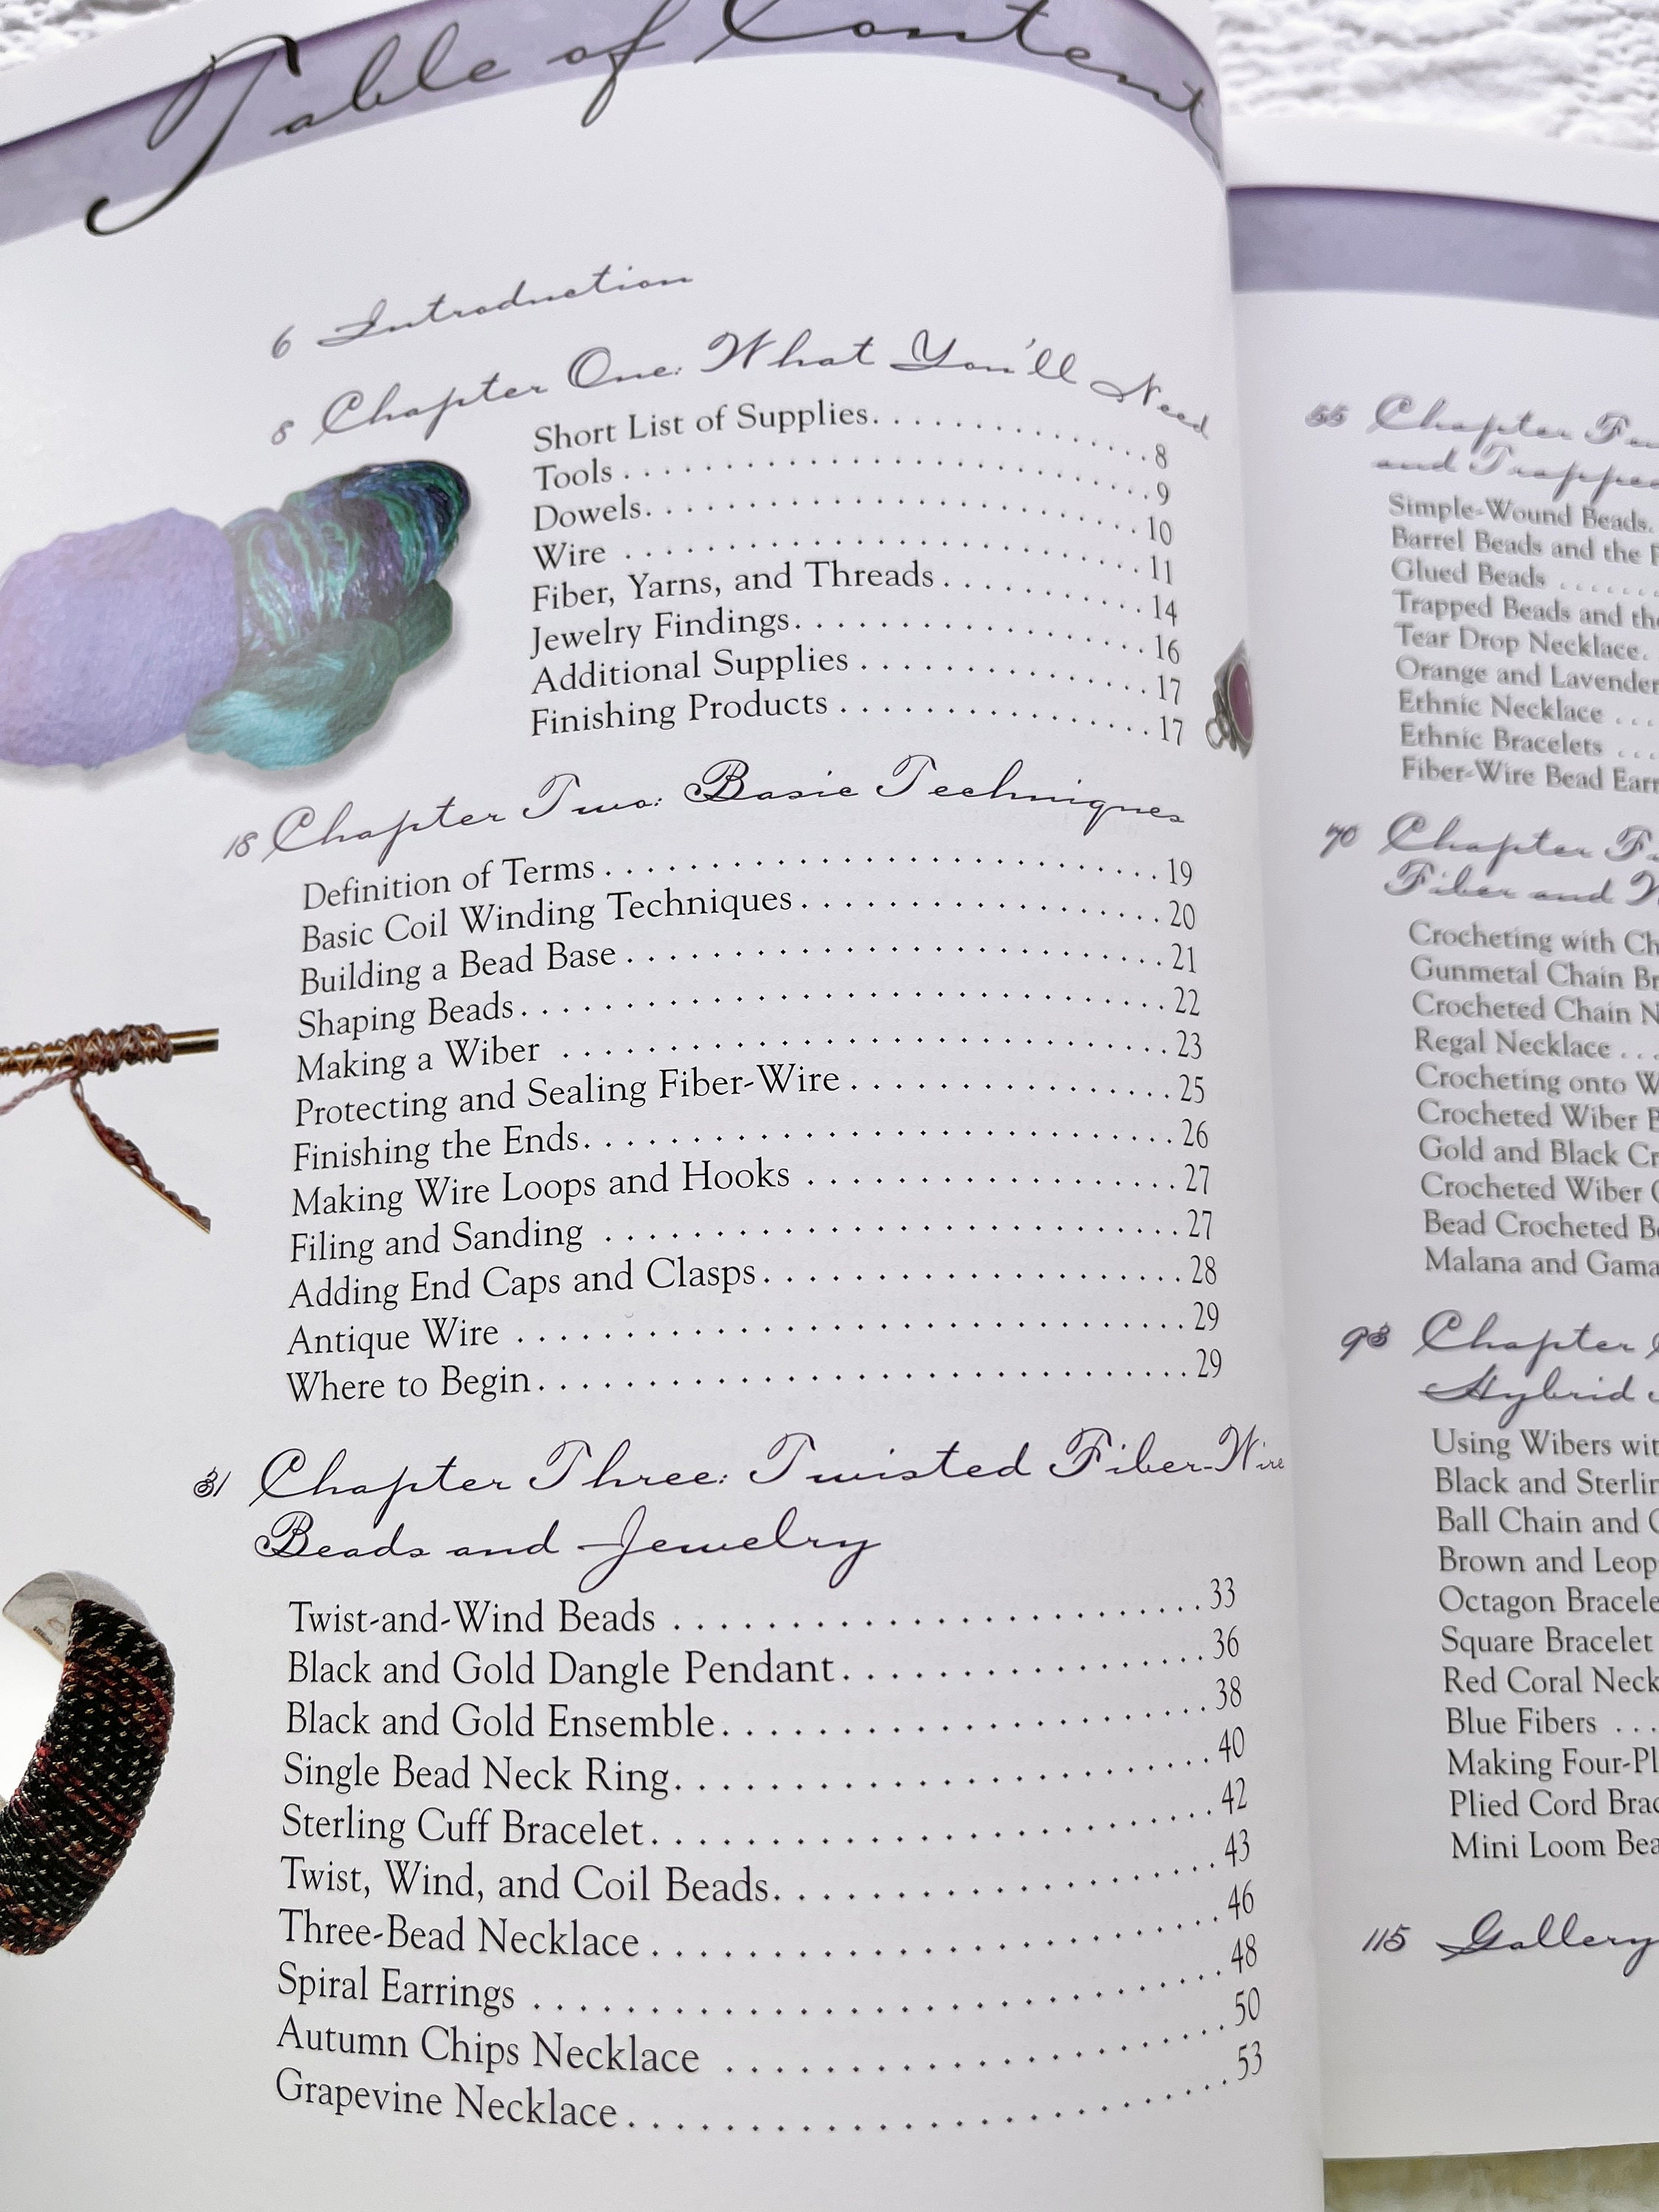 Table of Content
6 Introduction
8 Chapter One: What You'll Need
Short List of Supplies. . . . . . . . . . . . . . . 8
Tools . . . . . . . . . . . . . . . . . . . . . . . . . 9
Dowels. . . . . . . . . . . . . . . . . . . . . . . . 10
Wire . . . . . . . . . . . . . . . . . . . . . . . . . 11
Fiber, Yarns, and Threads . . . . . . . . . . . 14
Jewelry Findings. . . . . . . . . . . . . . . . . . 16
Additional Supplies . . . . . . . . . . . . . . . 17
Finishing Products . . . . . . . . . . . . . . . . 17
18 Chapter Two: Basic Techniques
Definition of Terms . . . . . . . . . . . . . . . . . . . . . . . . . 19
Basic Coil Winding Techniques . . . . . . . . . . . . . . . . 20
Building a Bead Base . . . . . . . . . . . . . . . . . . . . . . . . 21
Shaping Beads. . . . . . . . . . . . . . . . . . . . . . . . . . . . . 22
Making a Wiber . . . . . . . . . . . . . . . . . . . . . . . . . . . 23
Protecting and Sealing Fiber-Wire . . . . . . . . . . . . . . 25
Finishing the Ends. . . . . . . . . . . . . . . . . . . . . . . . . . 26
Making Wire Loops and Hooks . . . . . . . . . . . . . . . . 27
Filing and Sanding . . . . . . . . . . . . . . . . . . . . . . . . . 27
Adding End Caps and Clasps. . . . . . . . . . . . . . . . . . 28
Antique Wire . . . . . . . . . . . . . . . . . . . . . . . . . . . . . 29
Where to Begin. . . . . . . . . . . . . . . . . . . . . . . . . . . . 29
31 Chapter Three: Twisted Fiber-Wire
Beads and Jewelry
Twist-and-Wind Beads . . . . . . . . . . . . . . . . . . . . . . 33
Black and Gold Dangle Pendant . . . . . . . . . . . . . . . 36
Black and Gold Ensemble. . . . . . . . . . . . . . . . . . . . 38
Single Bead Neck Ring. . . . . . . . . . . . . . . . . . . . . . 40
Sterling Cuff Bracelet. . . . . . . . . . . . . . . . . . . . . . . 42
Twist, Wind, and Coil Beads. . . . . . . . . . . . . . . . . . 43
Three-Bead Necklace . . . . . . . . . . . . . . . . . . . . . . . 46
Spiral Earrings . . . . . . . . . . . . . . . . . . . . . . . . . . . . 48
Autumn Chips Necklace . . . . . . . . . . . . . . . . . . . . 50
Grapevine Necklace . . . . . . . . . . . . . . . . . . . . . . . . 53
55 Chapter
and Trapped
Simple-Wound Beads.
Barrel Beads and the
Glued Beads . . . . . . .
Trapped Beads and the
Tear Drop Necklace.
Orange and Lavender
Ethnic Necklace . . .
Ethnic Bracelets . . .
Fiber-Wire Bead
70 Chapter
Fiber and
Crocheting with
Gunmetal Chain
Crocheted Chain
Regal Necklace . . .
Crocheting onto
Crocheted Wiber
Gold and Black
Crocheted Wiber
Bead Crocheted
Malana and
93 Chapter
Hybrid
Using Wibers
Black and
Ball Chain and
Brown and
Octagon
Square Bracelet
Red Coral
Blue Fibers . . .
Making
Plied Cord
Mini Loom
115 Gallery